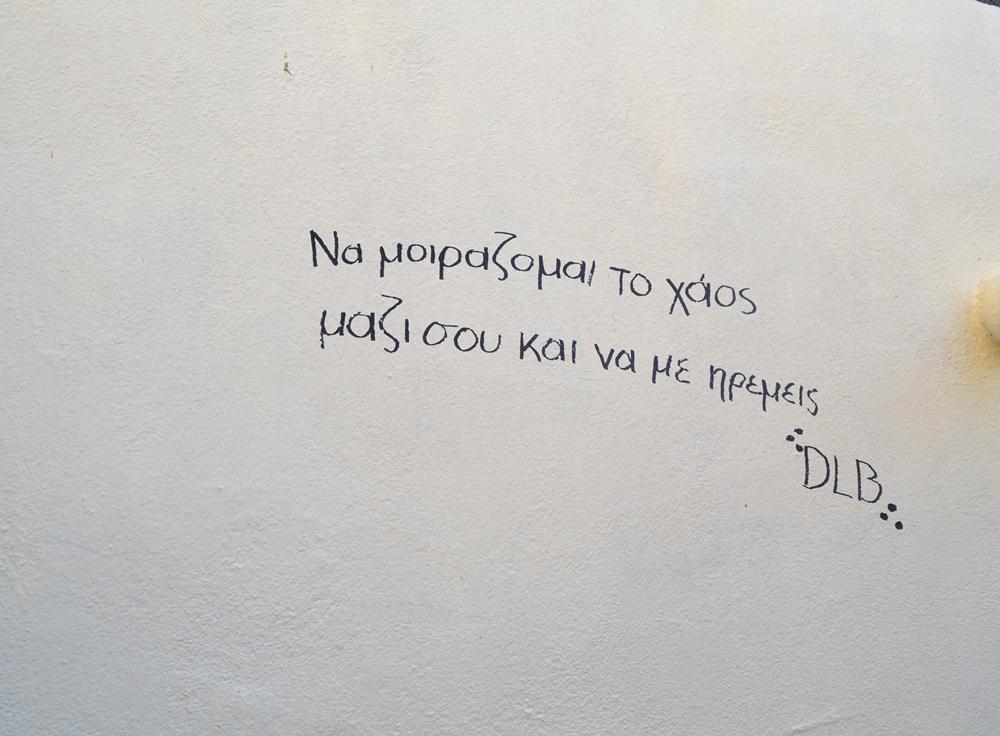 Να μοιραζομαι το χάος
μαζι σου και να με ηρεμεις
DLB